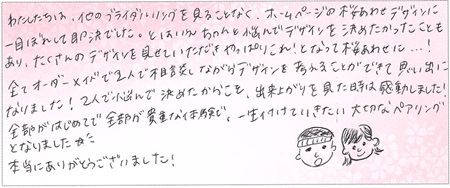 わたしたちは、他のブライダルリングを見ることなく、ホームページの桜あわせデザインに
一目ぼれして即決でした。とはいえ、ちゃんと悩んでデザインを決めたかったことも
あり、たくさんのデザインを見せていただきやっぱりこれ!となって桜あわせに…!
全てオーダーメイドで2人で相談しながらデザインを考えることができて思い出に
なりました!2人で悩んで決めたからこそ、出来上がりを見た時は感動しました!
全部がはじめてで全部が貴重な体験で、一生付けていきたい大切なペアリング
となりました
本当にありがとうございました!